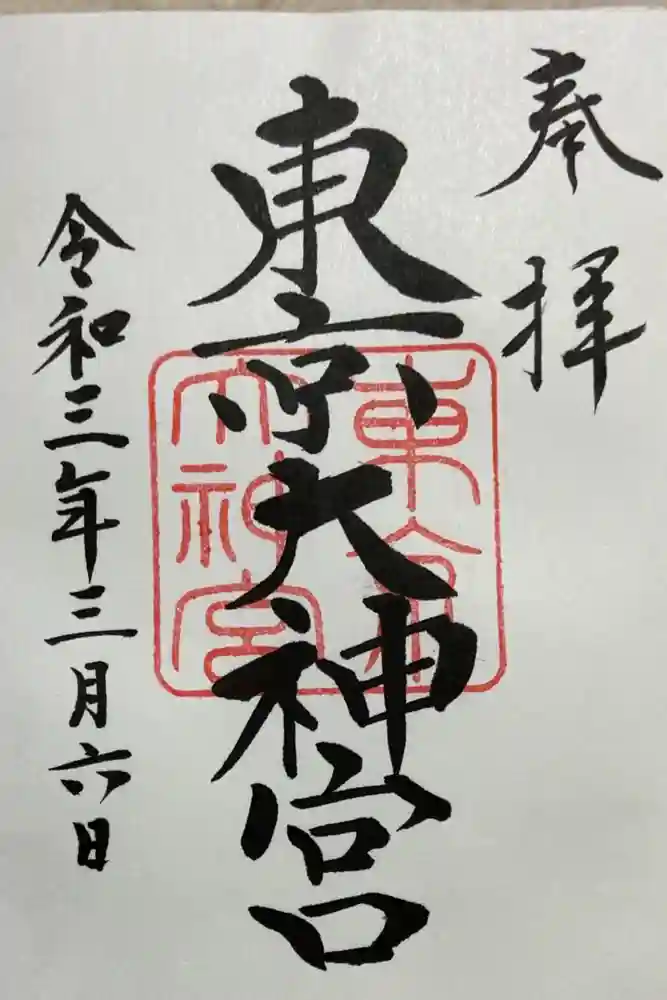 奉拝
東京大神宮
東京大神宮
令和三年三月六日